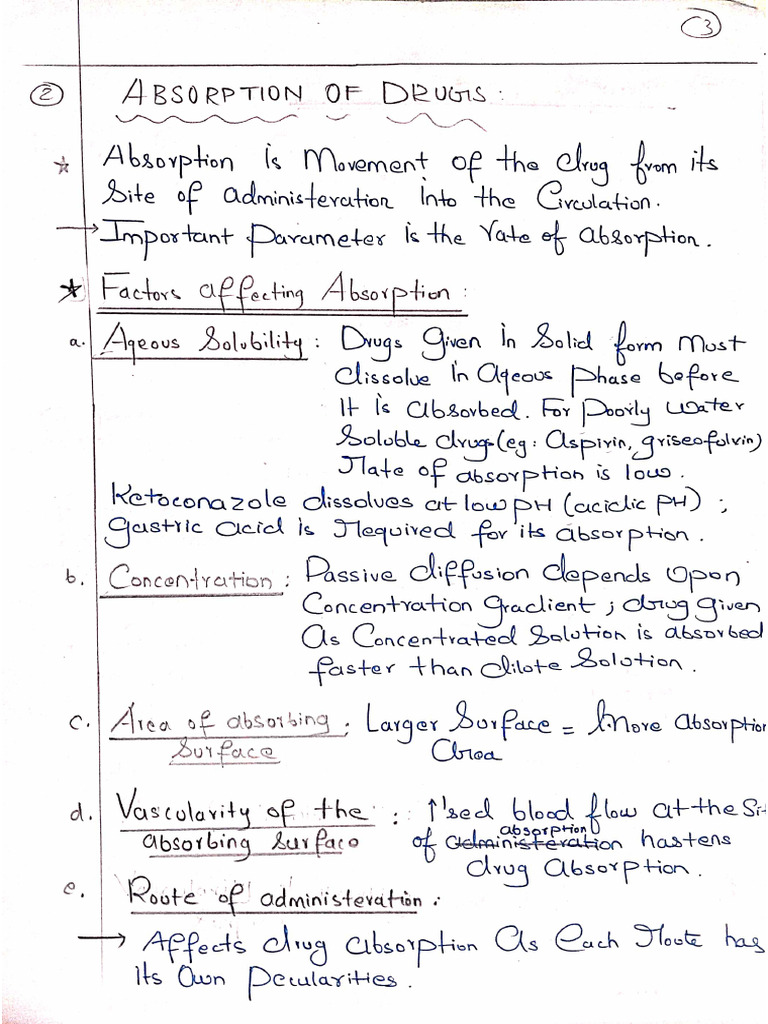 3
② ABSORPTION OF DRUGS :
☆ Absorption is Movement of the drug from its
Site of administeration into the Circulation.
→ Important Parameter is the rate of absorption.
★ Factors affecting Absorption :
a. Aqeous Solubility : Drugs given in Solid form must
dissolve in Aqeous phase before
it is absorbed. For Poorly water
Soluble drugs (eg: Aspirin, griseofulvin)
rate of absorption is low.
Ketoconazole dissolves at low pH (acidic pH) ;
gastric acid is required for its absorption.
b. Concentration : Passive diffusion depends upon
Concentration gradient ; drug given
as Concentrated Solution is absorbed
faster than dilote Solution.
c. Area of absorbing : Larger Surface = More absorption
Surface Area
d. Vascularity of the : ↑'sed blood flow at the Sit
absorption
absorbing Surface of administeration hastens
drug absorption.
e. Route of administeration :
→ Affects drug absorption as each route has
its own Pecularities.